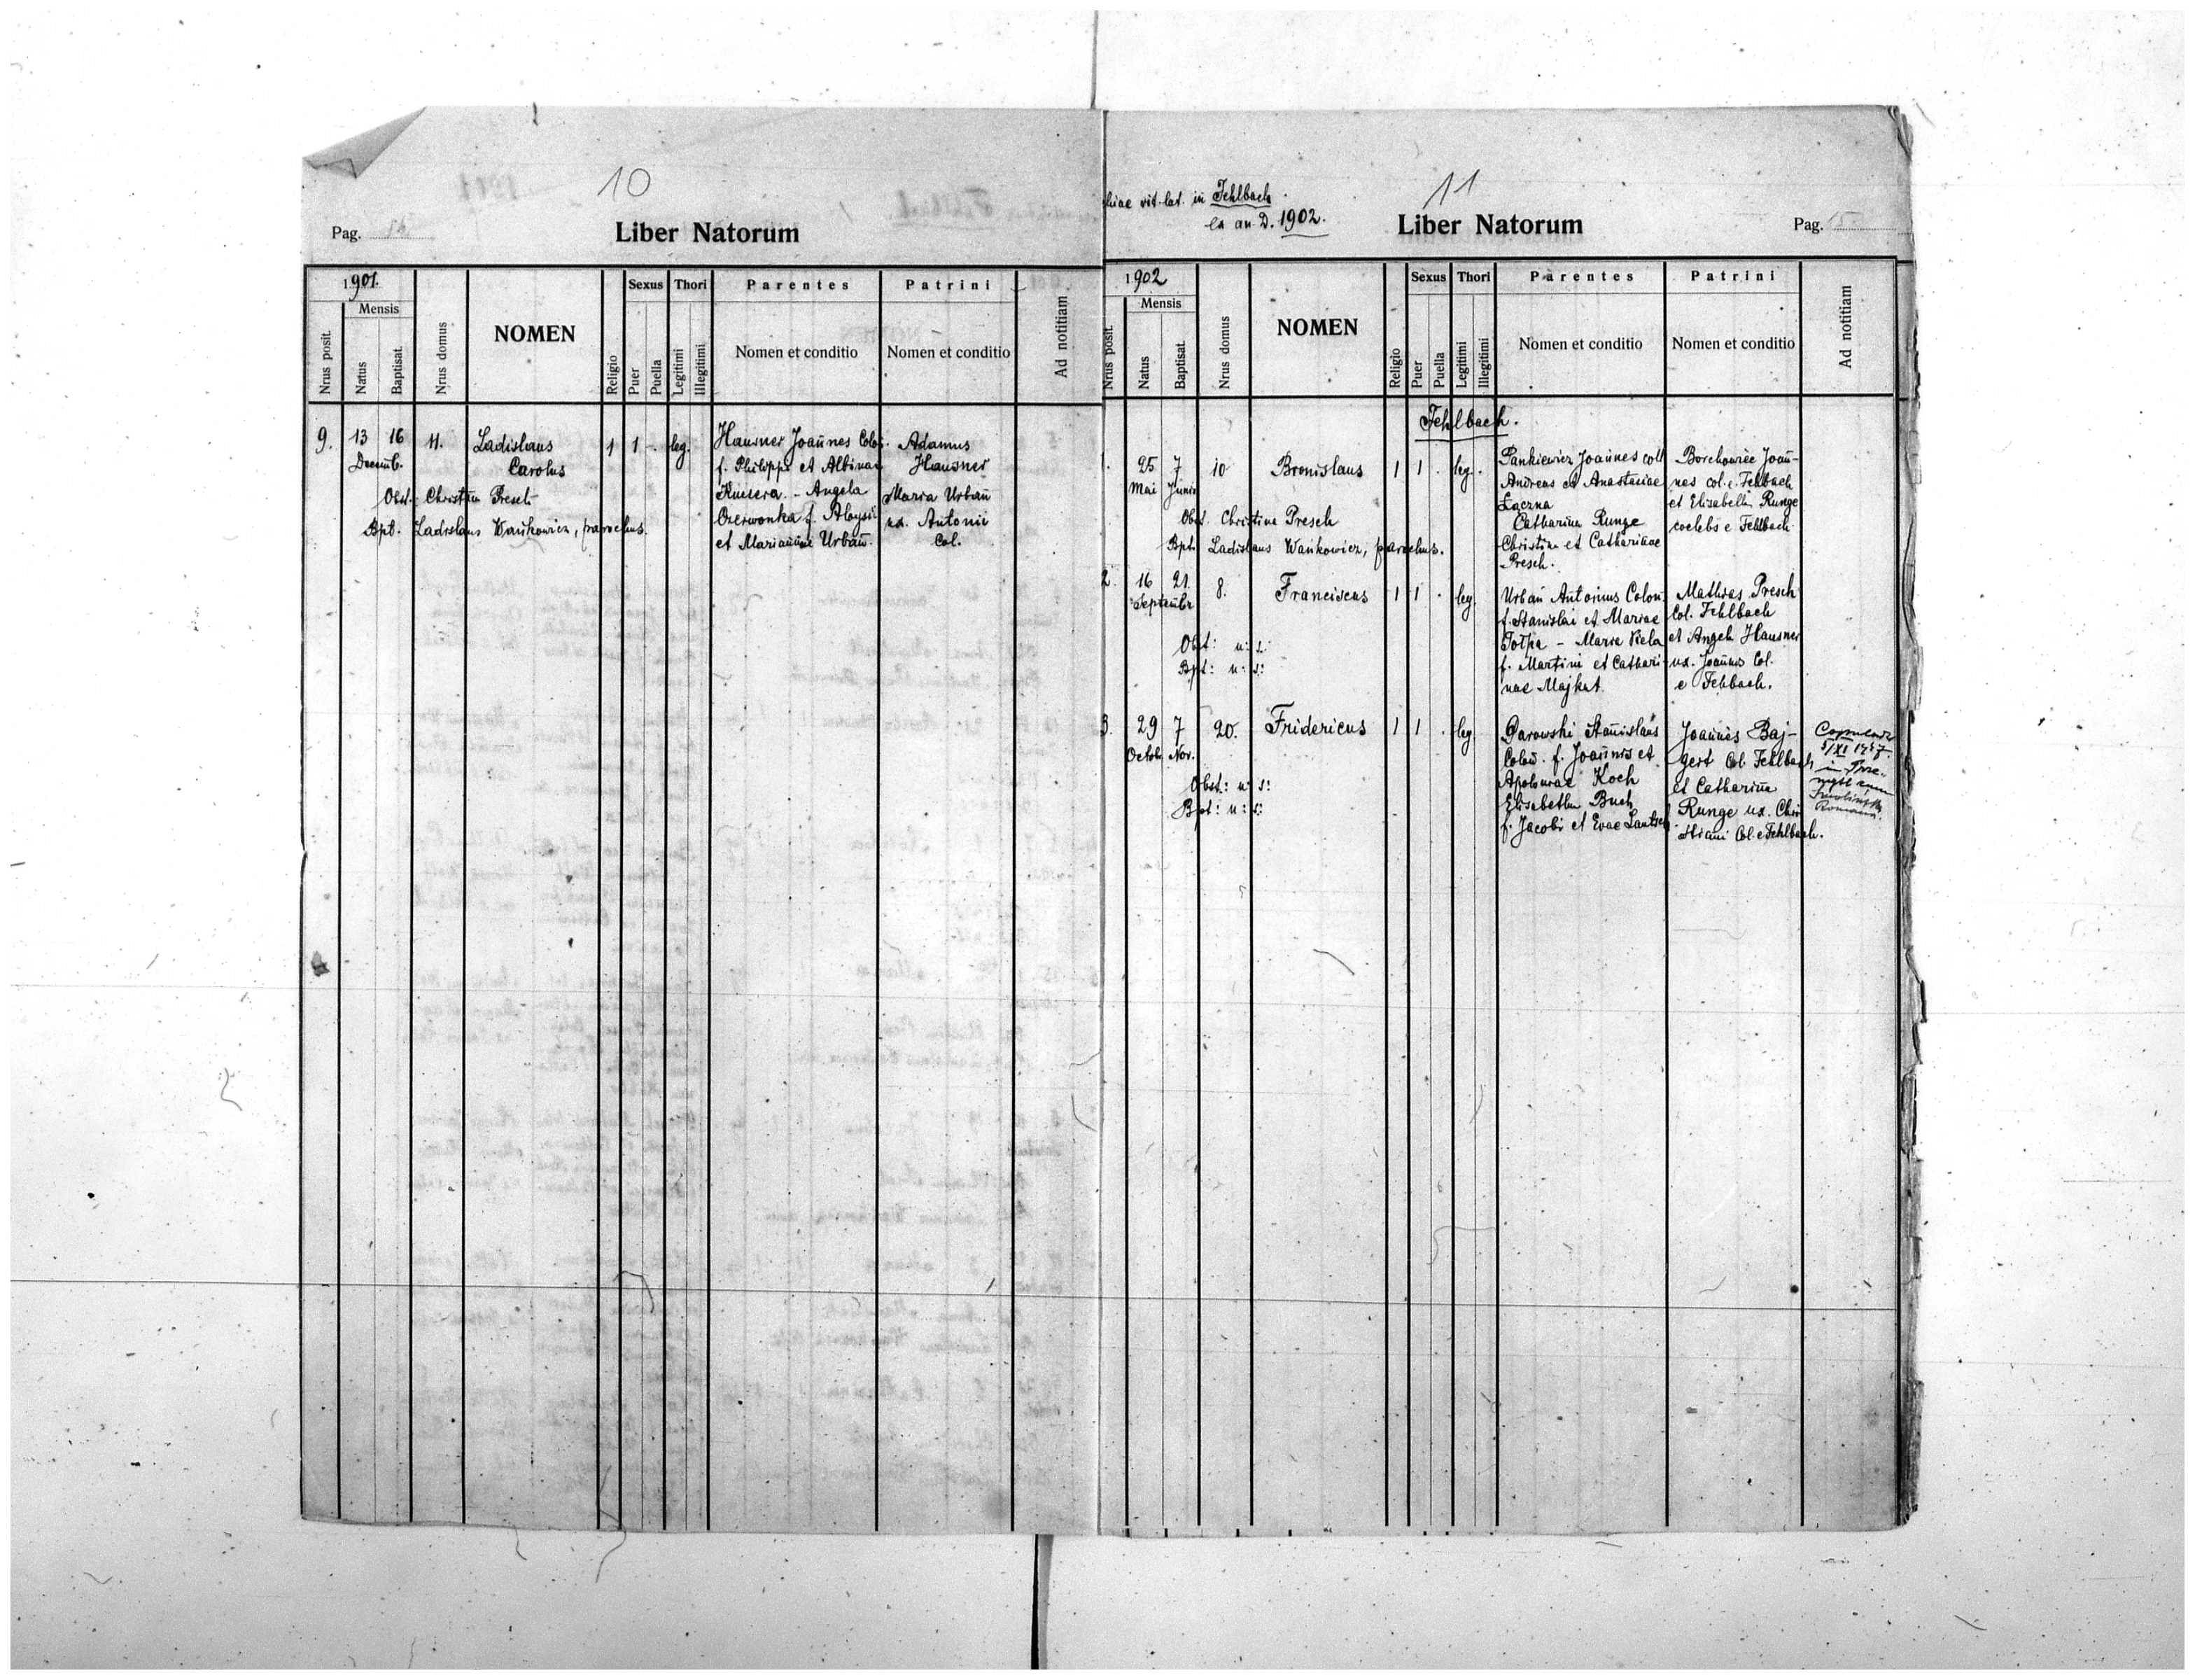 10
Pag.
Liber Natorum
1901.
Mensis
Nrus posit.
Natus
Baptisat.
Nrus domus
NOMEN
Religio
Sexus
Puer
Puella
Thori
Legitimi
Illegitimi
Parentes
Nomen et conditio
Patrini
Nomen et conditio
Ad notitiam
9. 13 16 11. Ladislaus 1 1 . leg.
Decemb. Carolus
Obst. Christina Presch
Bpt. Ladislaus Wańkowicz, parochus.
Hausner Joannes Colon.
f. Philippi et Albinae
Angela
Czerwonka f. Aloysii
et Mariannae Urban.
Adamus
Hausner
Maria Urban
ux. Antonii
Col.
11
vit. lat. in Fehlbach
an. D. 1902.
Liber Natorum
Pag. 15
1902
Mensis
Nrus posit.
Natus
Baptisat.
Nrus domus
NOMEN
Religio
Sexus
Puer
Puella
Thori
Legitimi
Illegitimi
Parentes
Nomen et conditio
Patrini
Nomen et conditio
Ad notitiam
Fehlbach.
1. 25 7 10 Bronislaus 1 1 . leg.
Mai Junii
Obst. Christina Presch
Bpt. Ladislaus Wańkowicz, parochus.
Pankiewicz Joannes
Andreas et Anastasiae
Łaczna
Catharina Runge
Christina et Catharinae
Presch.
Joan-
nes col. e Fehlbach
et Elisabetha Runge
coelebs e Fehlbach
2. 16 21. 8. Franciscus 1 1 . leg.
Septembr
Obst: u: s:
Bpt: u: s:
Urban Antonius Colon.
f. Stanislai et Mariae
Tołpa - Maria Kiela
f. Martini et Cathari-
nae Majkut.
Mathias Presch
Col. Fehlbach
et Angela Hausner
ux. Joannis Col.
e Fehlbach.
3. 29 7 20. Fridericus 1 1 . leg.
Octob. Nov.
Obst.: u: s:
Bpt: u: s:
Stanislaus
Colon. f. Joannis et
Apoloniae Koch
Elisabetha Buch
f. Jacobi et Evae
Joannes Baj-
gert Col. Fehlbach
et Catharina
Runge ux. Chri
stiani Col. e Fehlbach.
in